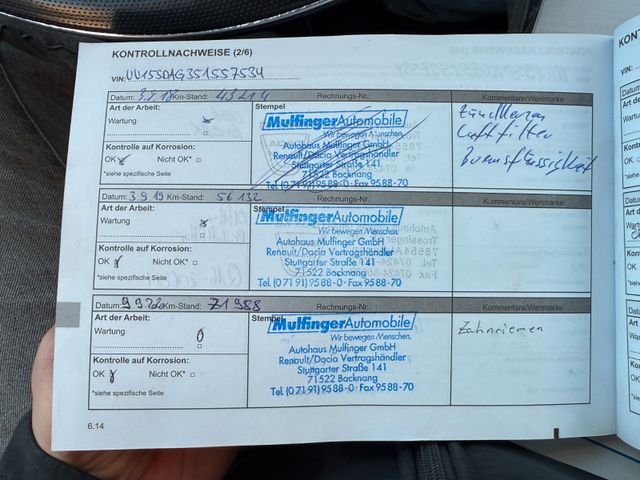 KONTROLLNACHWEISE (2/6)
VIN: UU15SDAG351557534
Datum: 3.9.18 Km-Stand: 43214 Rechnungs-Nr.: Kommentare/Wertmarke
Art der Arbeit: Stempel
Wartung
Kontrolle auf Korrosion:
OK Nicht OK*
*siehe spezifische Seite
Mulfinger Automobile
Wir bewegen Menschen.
Autohaus Mulfinger GmbH
Renault/Dacia Vertragshändler
Stuttgarter Straße 141
71522 Backnang
Tel. (0 71 91) 95 88-0 · Fax 95 88-70
Zündkerzen
Luftfilter
Bremsflüssigkeit
Datum: 3 9 19 Km-Stand: 56 132 Rechnungs-Nr.: Kommentare/Wertmarke
Art der Arbeit: Stempel
Wartung
Kontrolle auf Korrosion:
OK Nicht OK*
*siehe spezifische Seite
Mulfinger Automobile
Wir bewegen Menschen.
Autohaus Mulfinger GmbH
Renault/Dacia Vertragshändler
Stuttgarter Straße 141
71522 Backnang
Tel. (0 71 91) 95 88-0 · Fax 95 88-70
Datum: 9 9 22 Km-Stand: 71988 Rechnungs-Nr.: Kommentare/Wertmarke
Art der Arbeit: Stempel
Wartung
Kontrolle auf Korrosion:
OK Nicht OK*
*siehe spezifische Seite
Mulfinger Automobile
Wir bewegen Menschen.
Autohaus Mulfinger GmbH
Renault/Dacia Vertragshändler
Stuttgarter Straße 141
71522 Backnang
Tel. (0 71 91) 95 88-0 · Fax 95 88-70
Zahnriemen
6.14